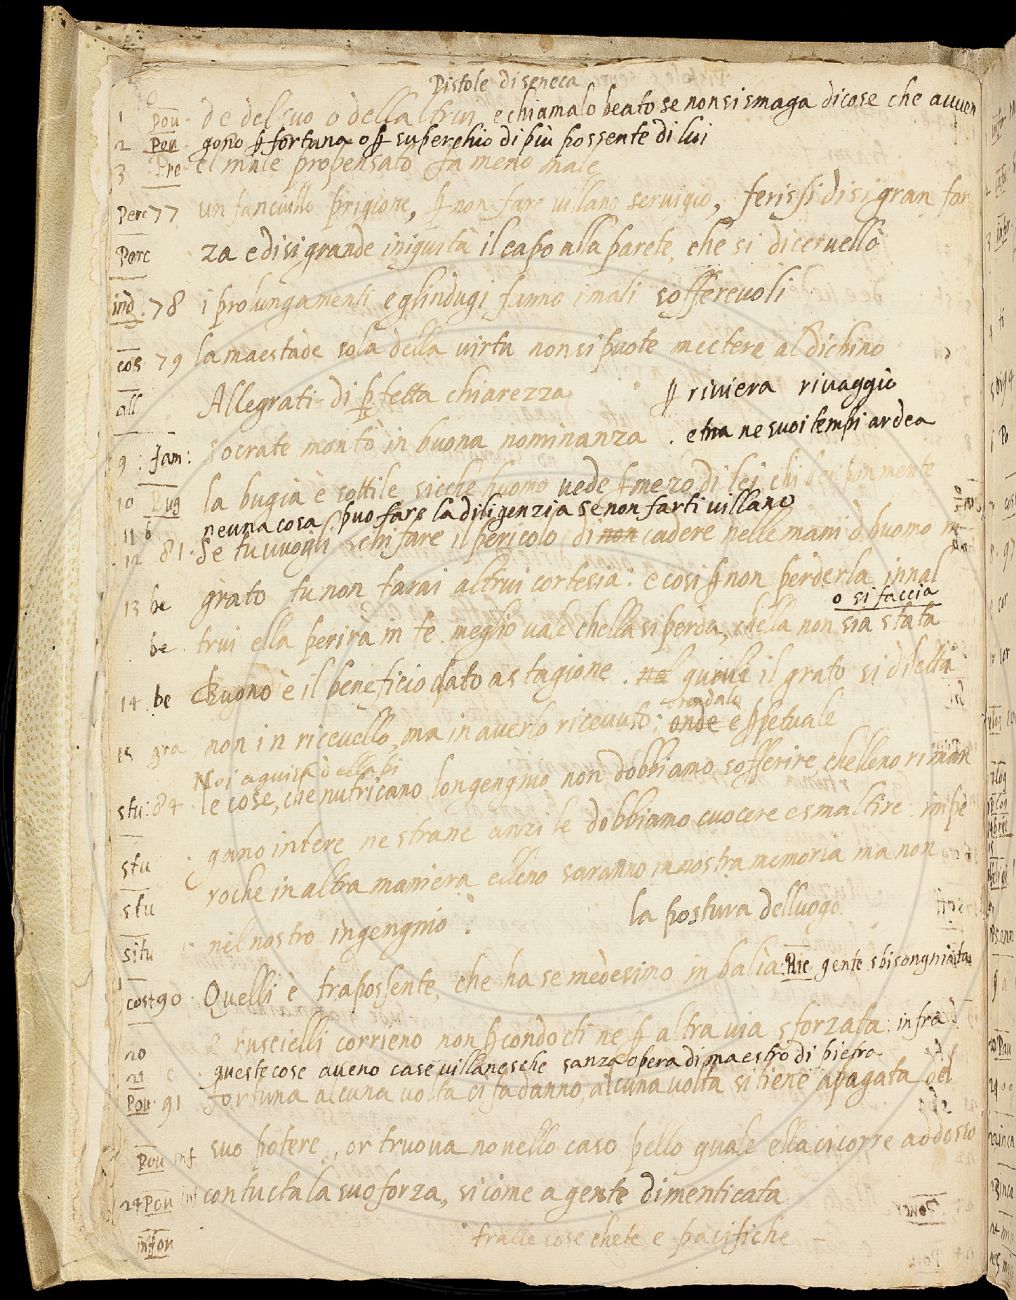 Pistole di seneca
1 Pou de del suo o della ltrui e chiamalo beato se non si smaga di cose che avven
2 Pou gono ꝑ fortuna o ꝑ superchio di più possente di lui
3 Pre el male propensato fa meno male
Perc 77 un fanciullo prigione, ꝑ non fare villano servigio, ferissi di si gran for
Perc za e di si grande iniquità il capo alla parete, che si dicervellò
ind. 78 i prolungamenti e gl indugi fanno i mali sofferevoli
cos 79 la maestade sola della virtu non si puote mectere al dichino
all Allegrati di ꝑfetta chiarezza ꝑ riviera rivaggio
9 fam: socrate montò in buona nominanza . etna ne suoi tempi ardea
10 Bug la bugia è sottile sicche huomo vede ꝑ mezo di lei chi ben pon mente
11 b neuna cosa può fare la diligenzia se non farti villano
12 81. Se tu vuogli schifare il pericolo di non cadere nelle mani d huomo in
13 be grato tu non farai altrui cortesia: e cosi ꝑ non perderla in nal
o si faccia
be trui ella perira in te. meglio vale chella si perda, chella non sia stata
14 be Buono è il beneficio dato a stagione. quivi il grato si diletta
15 gra non in ricevello, ma in averlo ricevuto: onde e ꝑpetuale
Noi a guisa della pi
stu: 84 le cose, che nutricano longegnio non dobbiamo sofferire chelleno riman
stu gnino intere ne strane anzi le dobbiamo cuocere e smaltire. impe
stu roche in altra maniera elleno saranno in nostra memoria ma non
situ nel nostro ingengnio. la postura delluogo
cost 90 Quelli è traposente, che ha se medesimo in balia: Ric gente sbisongniata
20 E ruscielli corrieno non ꝑ condocti ne ꝑ altra via sforzata: infra
21 queste cose aveno case villanesche sanza opera di maestro di pietra
Pou 91 fortuna alcuna volta ci fa danno, alcuna volta si tiene apagata del
Pou inf suo potere, or truova novello caso pello quale ella ci corre adosso
24 Pou inf con tucta la suo forza, sicome a gente dimenticata
infor tralle cose chete e pacifiche